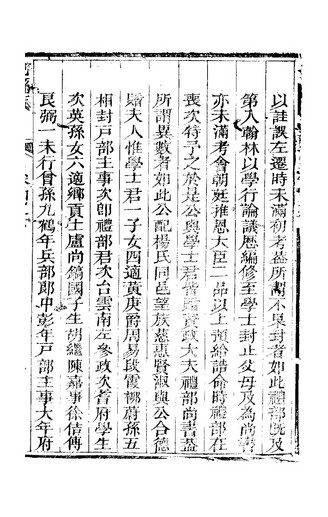 以詿誤左遷時未滿初考蓋所謂不果封者如此禮部既及
第入翰林以學行論議歷編修至學士封止父母及為尚書
亦未滿考會朝廷推恩大臣二品以上預給誥命時禮部在
喪次特予之於是公與學士君皆贈資政大夫禮部尚書蓋
所謂異數者如此公配楊氏同邑望族慈惠賢淑與公合德
贈夫人惟學士君一子女四適黃庚爵周易段霞柳蔚孫五
相封戶部主事次即禮部君次台雲南左參政次耆府學生
次英孫女六適鄉貢士盧尚鎬國子生胡繼陳嘉事徐佶傅
良弼一未行曾孫九鶴年兵部郎中彭年戶部主事大年府